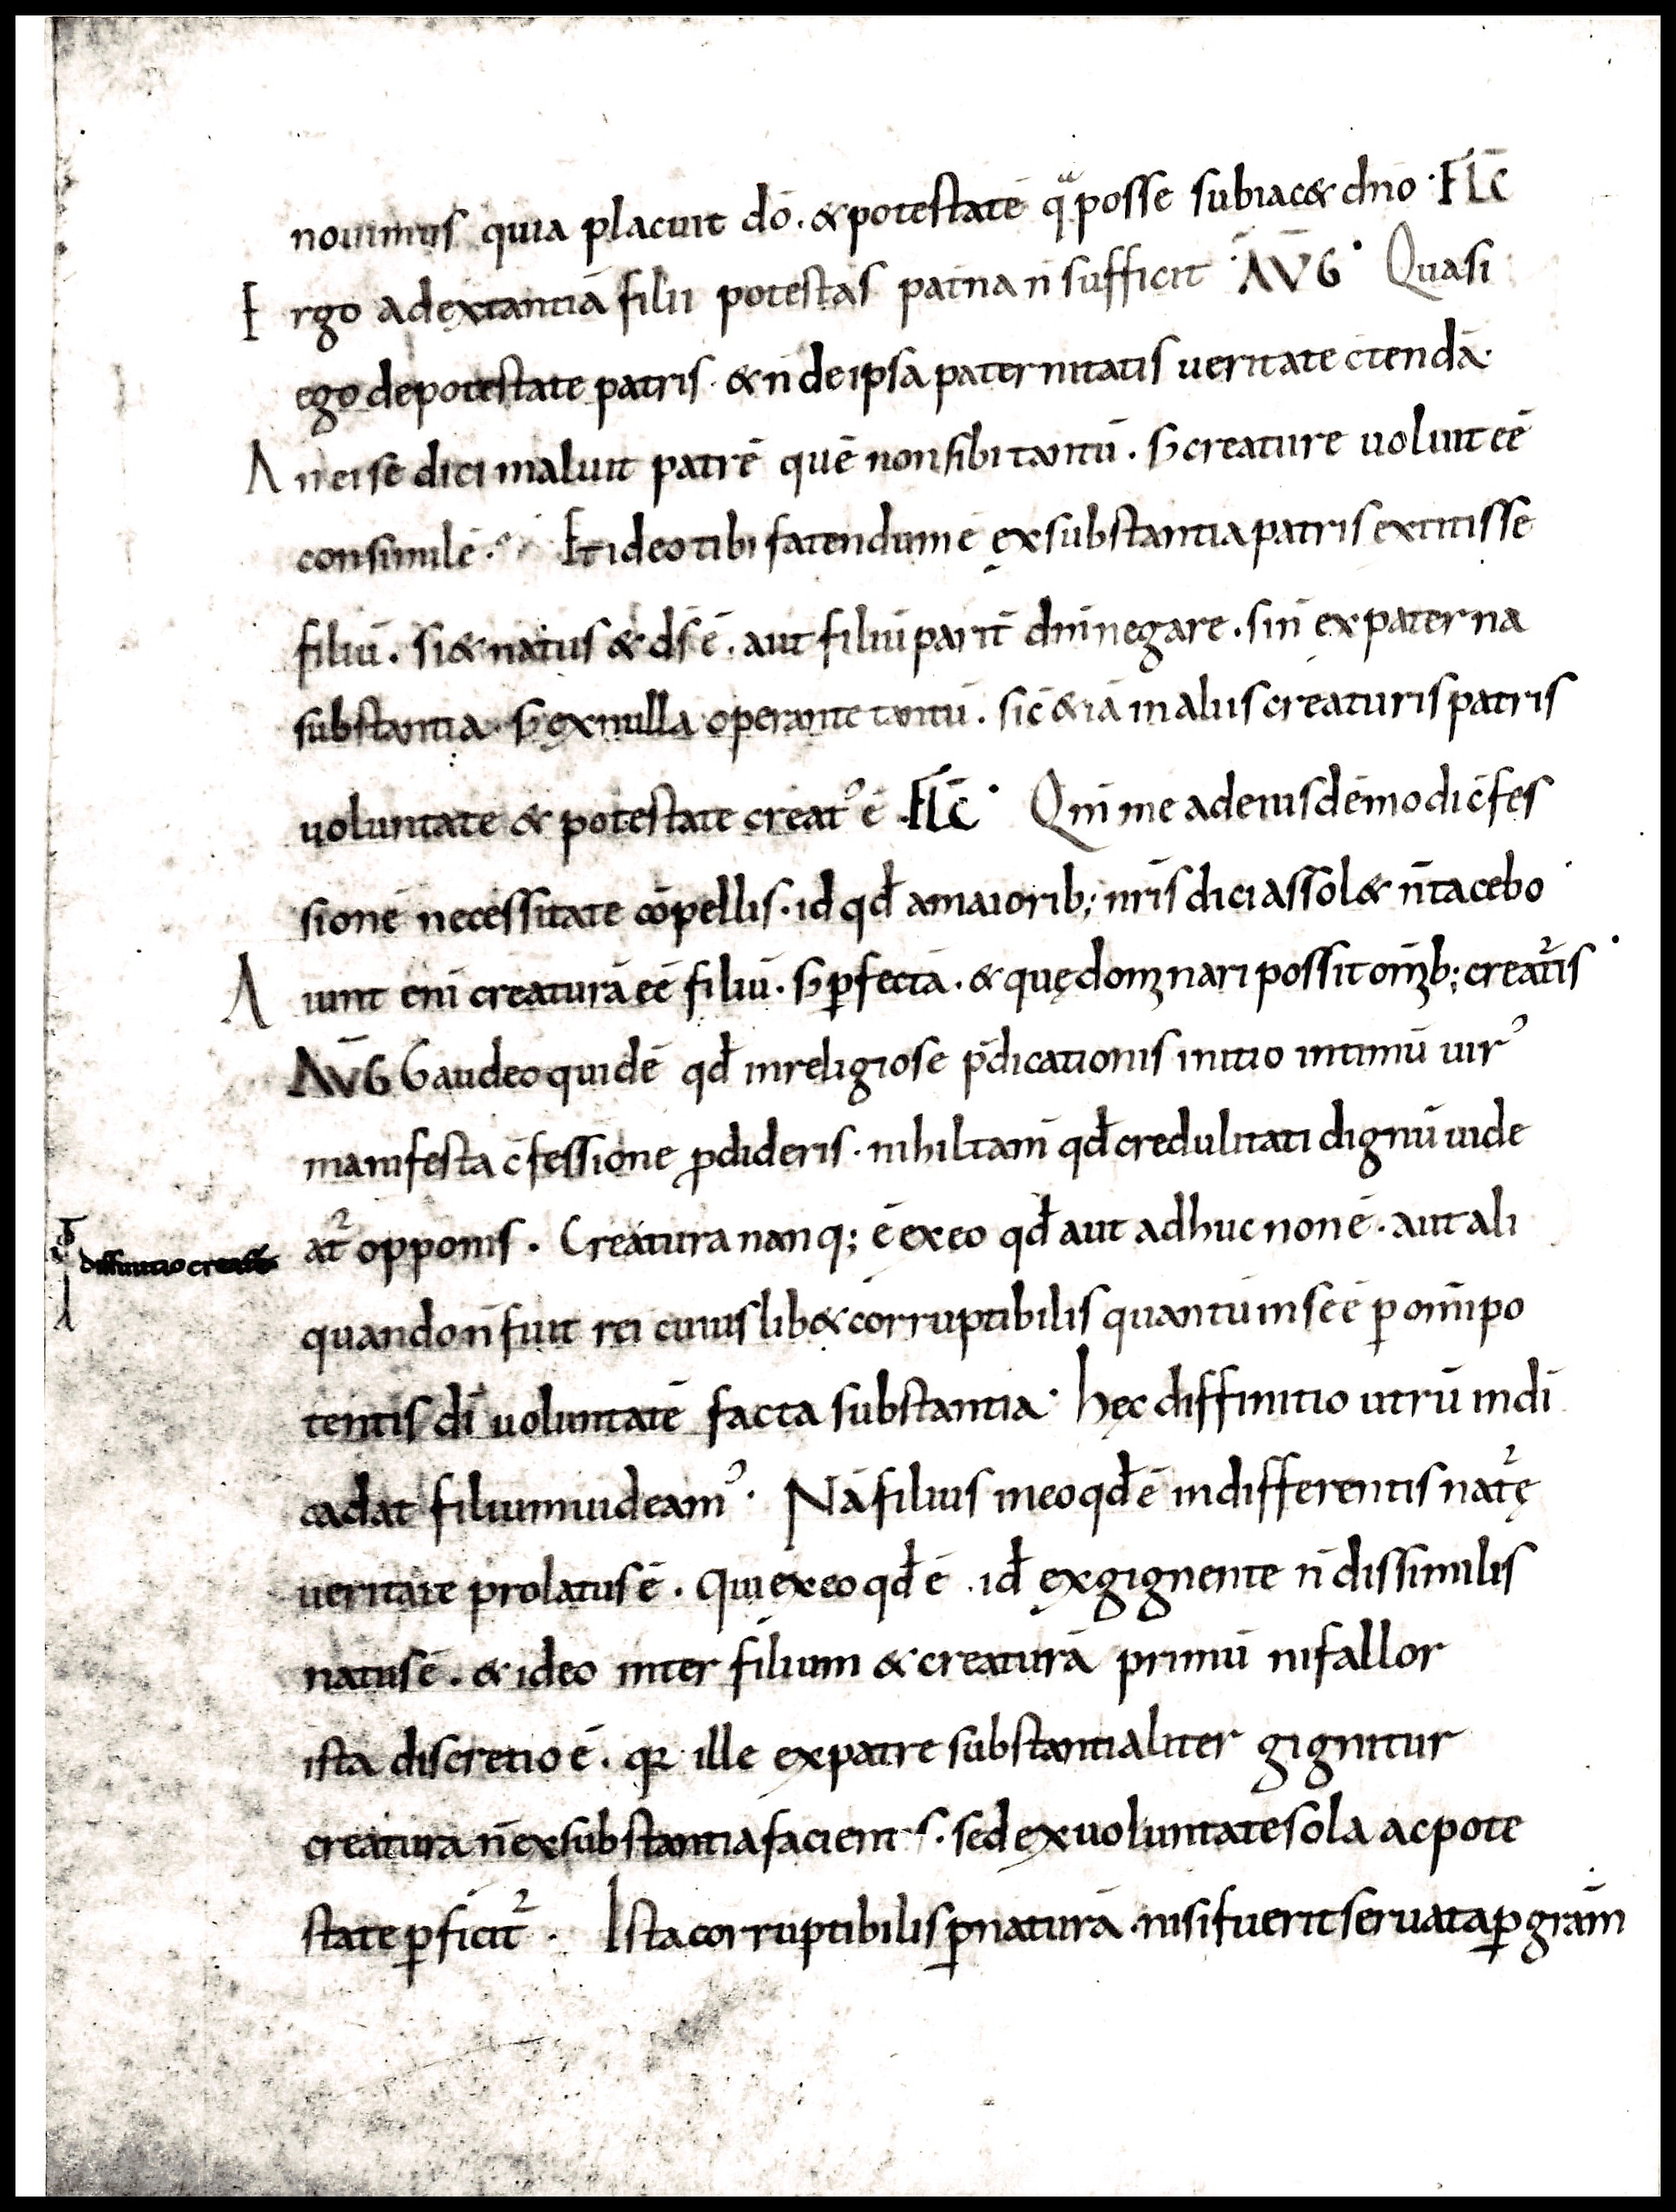 nouimus quia placuit dō. & potestatē qͣ posse subiac& dn̄o · FL̄C
Ergo ad extantiā filii potestas pat̄na n̄ sufficit · AV̄G · Quasi
ego de potestate patris · & n̄ de ipsa paternitatis ueritate c̄tendā·
An ei se dici maluit patrē quē non sibi tantū . sꝫ creature uoluit eē
consimilē · Et ideo tibi fatendum ē ex substantia patris extitisse
filiū . si & natus & ds̄ ē . aut filiū parit̄ dn̄i negare . si n̄ ex paterna
substantia · sꝫ ex nulla operante tantū . sic̄ & iā in aliis creaturis patris
uoluntate & potestate creatꝰ ē · FL̄C · Qm̄ me ad eiusdē modi c̄fes
sionē necessitate cōpellis · id qd̄ a maiorib; nr̄is dici assol& n̄ tacebo
Aiunt eni creaturā eē filiū . sꝫ ꝑfectā . & quę dom̅nari possit om̅b; creat᷑is ·
AV̄G Gaudeo quidē qd̄ in religiose p̄dicationis initio intimū uirꝰ
manifesta c̄fessione ꝓdideris · nihil tam̄ qd̄ credulitati dignū uide
at᷑ opponis . Creatura nanq; ē ex eo qd̄ aut adhuc non ē . aut ali
diffinitio creatur̄
quando n̄ fuit rei cuiuslib& corruptibilis quantū in se ē ꝑ om̄ipo
tentis dī uoluntatē facta substantia · hęc diffinitio utrū indī
cadat filium uideamꝰ · Nā filius in eo qd̄ ē indifferentis nat᷑ę
ueritate prolatus ē . qui ex eo qd̄ ē . id̄ ex gignente n̄ dissimilis
natus ē . & ideo inter filium & creaturā primū ni fallor
ista discretio ē . qꝛ ille ex patre substantialiter gignitur
creatura n̄ ex substantia facient s . sed ex uoluntate sola ac pote
state ꝑficit᷑ · Ista corruptibilis ꝑ naturā · nisi fuerit seruata ꝑ grām